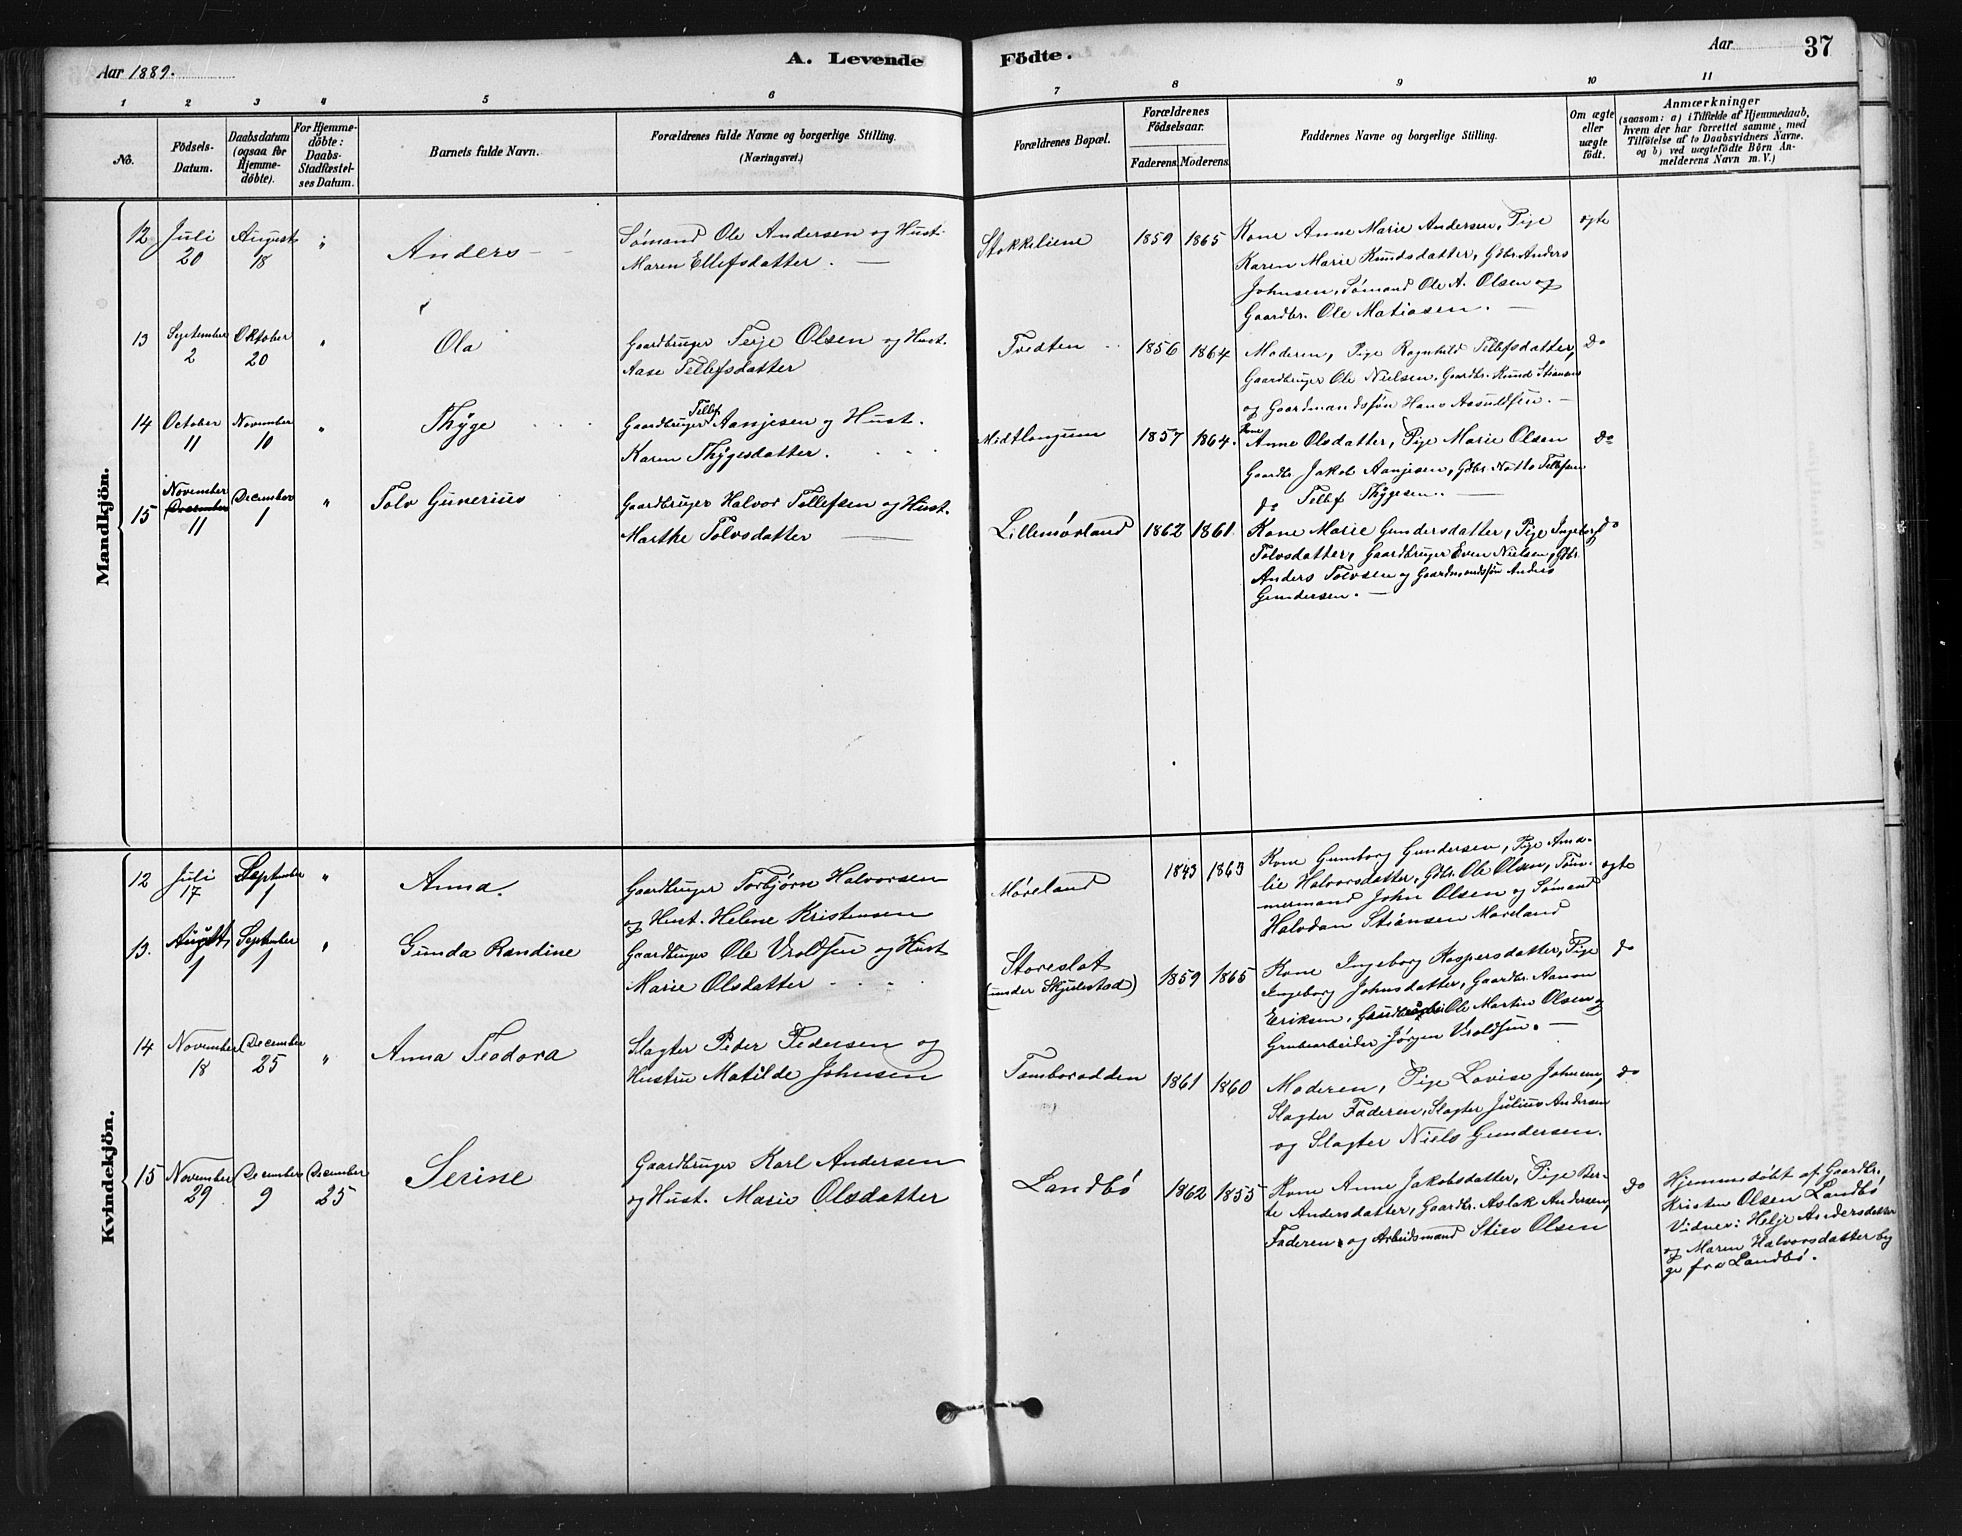 Aar 1889.
A. Levende Födte.
Aar 37
1 2 3 4 5 6 7 8 9 10 11
No.
Födsels-Datum.
Daabsdatum (ogsaa for Hjemme-döbte).
For Hjemme-döbte: Daabs-Stadfæstel-ses Datum.
Barnets fulde Navn.
Forældrenes fulde Navne og borgerlige Stilling.
(Næringsvei.)
Forældrenes Bopæl.
Forældrenes Födselsaar.
Faderens. Moderens.
Faddernes Navne og borgerlige Stilling.
Om ægte eller uægte födt.
Anmærkninger
(saasom: a) i Tilfælde af Hjemmedaab,
hvem der har forrettet samme, med
Tilföielse af to Daabsvidners Navne.
og b) ved uægtefödte Börn An-
melderens Navn m. V.)
Mandkjön.
12 Juli 20 August 18 " Anders
Sømand Ole Andersen og Hust.
Maren Ellefsdatter.
Stokkeliene 1859 1865
Kone Anne Marie Andersen, Pige
Karen Marie Knudsdatter, Gdbr. Anders
Johnsen, Sømand Ole A. Olsen og
Gaardbr. Ole Matiasen.
ægte
13 September 2 Oktober 20 " Ola
Gaardbruger Terje Olsen og Hust.
Aase Tellefsdatter
Tvedten 1856 1864
Moderen, Pige Ragnhild Tellefsdatter,
Gaardbruger Ole Nielsen, Gaardbr. Knud Stiansen
og Gaardmandssøn Hans Assuldsen.
do
14 October 11 November 10 " Thyge
Gaardbruger Tellef Aanjesen og Hust.
Karen Thygesdatter.
Midtlangum 1857 1864.
Kone Anne Olsdatter, Pige Marie Olsen
Gaardbr. Jakob Aanjesen, Gdbr. Notto Tellefsen
do Tellef Thygesen.
do
15 November December 11 December 1 " Tolv Gunerius
Gaardbruger Halvor Tellefsen og Hust.
Marthe Tolvsdatter
Lillemørland 1862 1861
Kone Marie Gundersdatter, Pige Ingeborg
Tolvsdatter, Gaardbruger Even Nielsen, Gdbr.
Anders Tolvsen og Gaardmandssøn Anders
Gundersen.
do
Kvindekjön.
12 Juli 17 September 1 " Anna.
Gaardbruger Torbjørn Halvorsen
og Hust. Helene Kristensen
Møreland 1843 1863
Kone Gunborg Gundersen, Pige Ama-
lie Halvorsdatter, Gdbr. Ole Olsen, Tøm-
mermand John Olsen og Sømand
Halvdan Stiansen Moreland
ægte
13. August 1 September 1 " Gunda Randine
Gaardbruger Ole Vroldsen og Hust
Marie Olsdatter
Storeslot
(under Skjulestad) 1859 1865
Kone Ingeborg Kaspersdatter, Pige
Ingeborg Johnsdatter, Gaardbr. Aanon
Eriksen, Gaardbruger Ole Martin Olsen og
Grubearbeider Jørgen Vroldsen.
do
14 November 18 December 25 " Anna Teodora
Slagter Peder Pedersen og
Hustru Matilde Johnsen
Tamborodden 1861 1860
Moderen, Pige Lovise Johnsen,
Slagter Faderen, Slagter Julius Andersen
og Slagter Niels Gundersen.
do
15 November 29 December 9 December 25 Serine
Gaardbruger Karl Andersen
og Hust. Marie Olsdatter
Landbö 1862 1855
Kone Anne Jakobsdatter, Pige Ber-
te Andersdatter, Gaardbr. Aslak Andersen,
Faderen og Arbeidsmand Stiev Olsen
do
Hjemmedöbt af Gaardbr.
Kristen Olsen Landbö
Vidner: Helje Andersdatter
og Maren Halvorsdatter beg
ge fra Landbö.